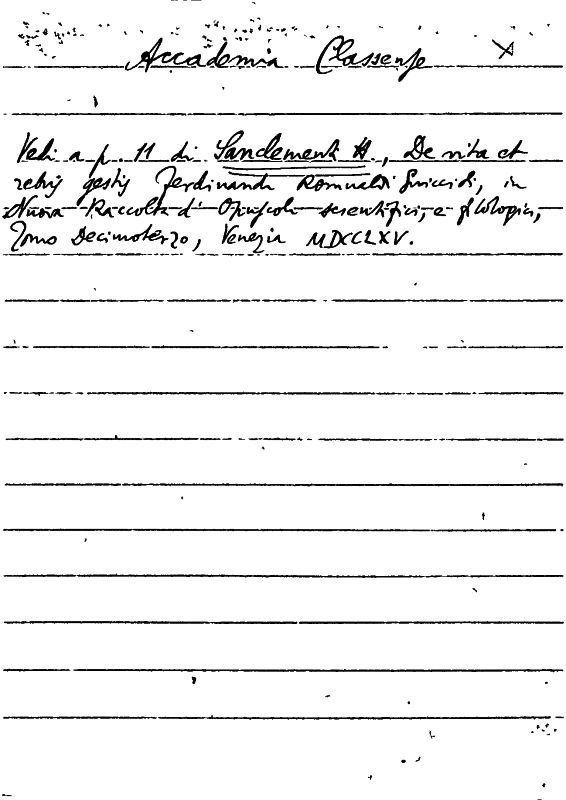 Accademia Classense
Vedi a p. 11 di Sanclementi H., De vita et
rebus gestis Ferdinandi Romualdi Guiccioli, in
Nuova Raccolta d'Opuscoli scientifici, e filologici,
Tomo Decimoterzo, Venezia MDCCLXV.